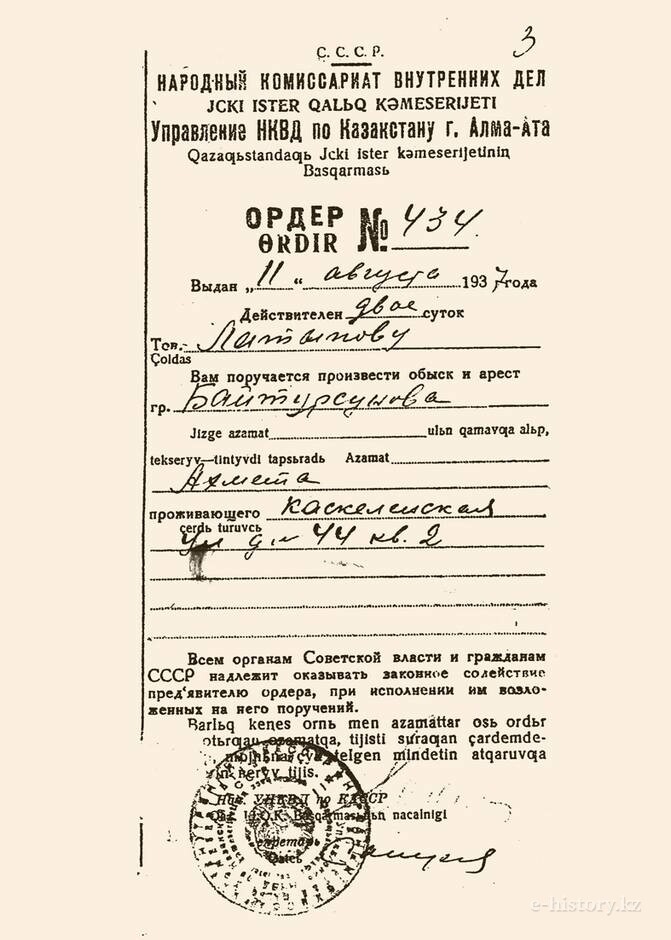 3
С. С. С. Р.
НАРОДНЫЙ КОМИССАРИАТ ВНУТРЕННИХ ДЕЛ
JCKI ISTER QALЬQ KƏMESERIJETI
Управление НКВД по Казакстану г. Алма-Ата
Qazaqьstandaqь Jcki ister kəmeserijetiniꞑ
Basqarmasь
ОРДЕР
ɵRDIR
№ 434.
Выдан „11“ августа 1937 года
Действителен двое суток
Тов. Латыпову
Çoldas
Вам поручается произвести обыск и арест
гр. Байтурсунова
Jizge azamat ulьn qamavqa alьp,
tekseryv—tintyvdi tapsьradь Azamat
Ахмета
проживающего Каскеленская
çerdь turuvcь
ул дм 44 кв. 2
Всем органам Советской власти и гражданам
СССР надлежит оказывать законное солействие
пред'явителю ордера, при исполнении им возло-
женных на него поручений.
Barlьq kenes ornь men azamattar osь ordьr
tijisti suraqan çardemde-
telgen mindetin atqaruvqa
tijis.
Нач. УНКВД по КАССР
Basqarmasьnьn nacalnigi
Секретарь
e-history.kz